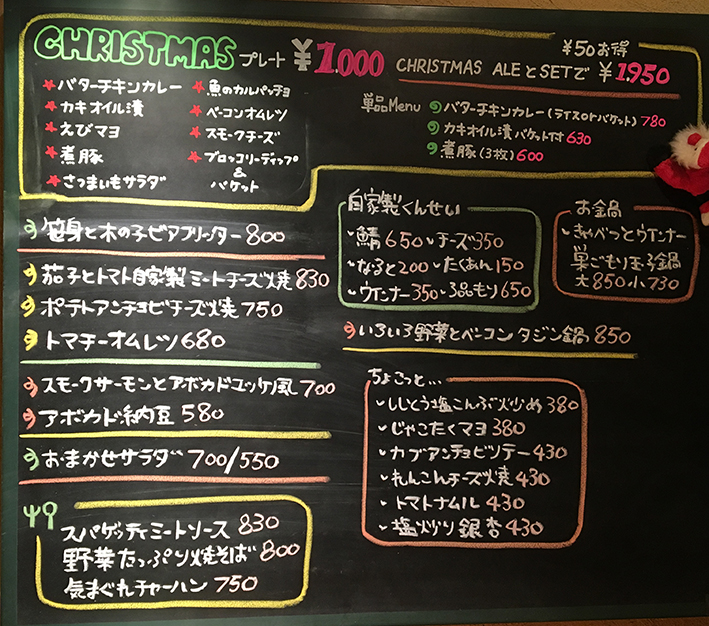 CHRISTMAS プレート ¥1000
¥50お得
CHRISTMAS ALEとSETで ¥1950
★バターチキンカレー
★カキオイル漬
★えびマヨ
★煮豚
★さつまいもサラダ
★魚のカルパッチョ
★ベーコンオムレツ
★スモークチーズ
★ブロッコリーディップ
&
バケット
単品Menu
バターチキンカレー(ライスorバケット) 780
カキオイル漬 バケット付 630
煮豚(3枚) 600
笹身と木の子ビアフリッター 800
茄子とトマト自家製ミートチーズ焼 830
ポテトアンチョビチーズ焼 750
トマチーオムレツ 680
スモークサーモンとアボカドユッケ風 700
アボカド納豆 580
おまかせサラダ 700/550
スパゲッティミートソース 830
野菜たっぷり焼そば 800
気まぐれチャーハン 750
自家製くんせい
鯖 650 チーズ 350
なると 200 たくあん 150
ウインナー 350 3品もり 650
お鍋
きゃべつとウインナー
巣ごもり玉子鍋
大 850 小 730
いろいろ野菜とベーコン タジン鍋 850
ちょこっと…
ししとう塩こんぶ炒め 380
じゃこたくマヨ 380
カブアンチョビソテー 430
れんこんチーズ焼 430
トマトナムル 430
塩炒り銀杏 430